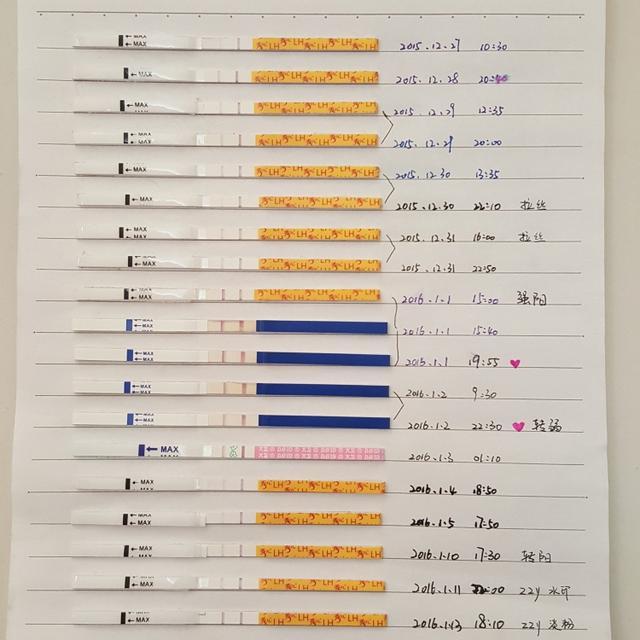 ← MAX LH 2015.12.27 10:30
← MAX LH 2015.12.28
← MAX LH 2015.12.29 12:35
← MAX LH 2015.12.29 20:00
← MAX LH 2015.12.30 13:35
← MAX LH 2015.12.30 22:10 拉丝
← MAX LH 2015.12.31 16:00 拉丝
← MAX LH 2015.12.31 22:50
← MAX LH 2016.1.1 15:00 强阳
← MAX 2016.1.1 15:40
← MAX 2016.1.1 19:55
← MAX 2016.1.2 9:30
← MAX 2016.1.2 22:30 转弱
← MAX 2016.1.3 01:10
← MAX LH 2016.1.4 18:50
← MAX LH 2016.1.5 17:50
← MAX LH 2016.1.10 17:30 转阳
← MAX LH 2016.1.11 22:00 ZZY 水印
← MAX LH 2016.1.13 18:10 ZZY 浅粉